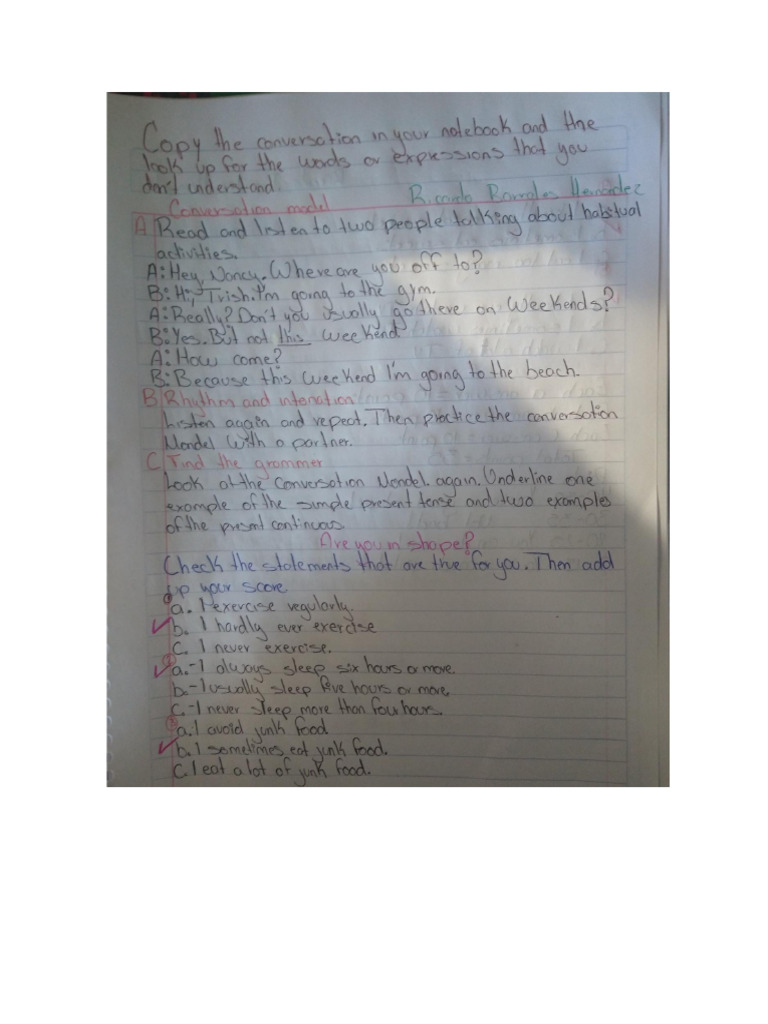 Copy the conversation in your notebook and the
look up for the words or expressions that you
don't understand.
Conversation model Ricardo Hernández
A Read and listen to two people talking about habitual
activities.
A: Hey, Nancy. Where are you off to?
B: Hi, Trish. I'm going to the gym.
A: Really? Don't you usually go there on Weekends?
B: Yes. But not this weekend
A: How come?
B: Because this weekend I'm going to the beach.
B Rhythm and intonation
Listen again and repeat. Then practice the conversation
Mondel With a partner.
C Find the grammer
Look at the Conversation Mondel. again. Underline one
example of the simple present tense and two examples
of the presnt continuos
Are you in shape?
Check the statements that are true for you. Then add
up your score
① a. I exercise regularly.
✓ b. I hardly ever exercise
C. I never exercise.
② ✓ a.-I always sleep six hours or more.
b.-I usually sleep five hours or more,
C.-I never sleep more than four hours.
③ a. I avoid junk food
✓ b. I sometimes eat junk food.
C. I eat a lot of junk food.